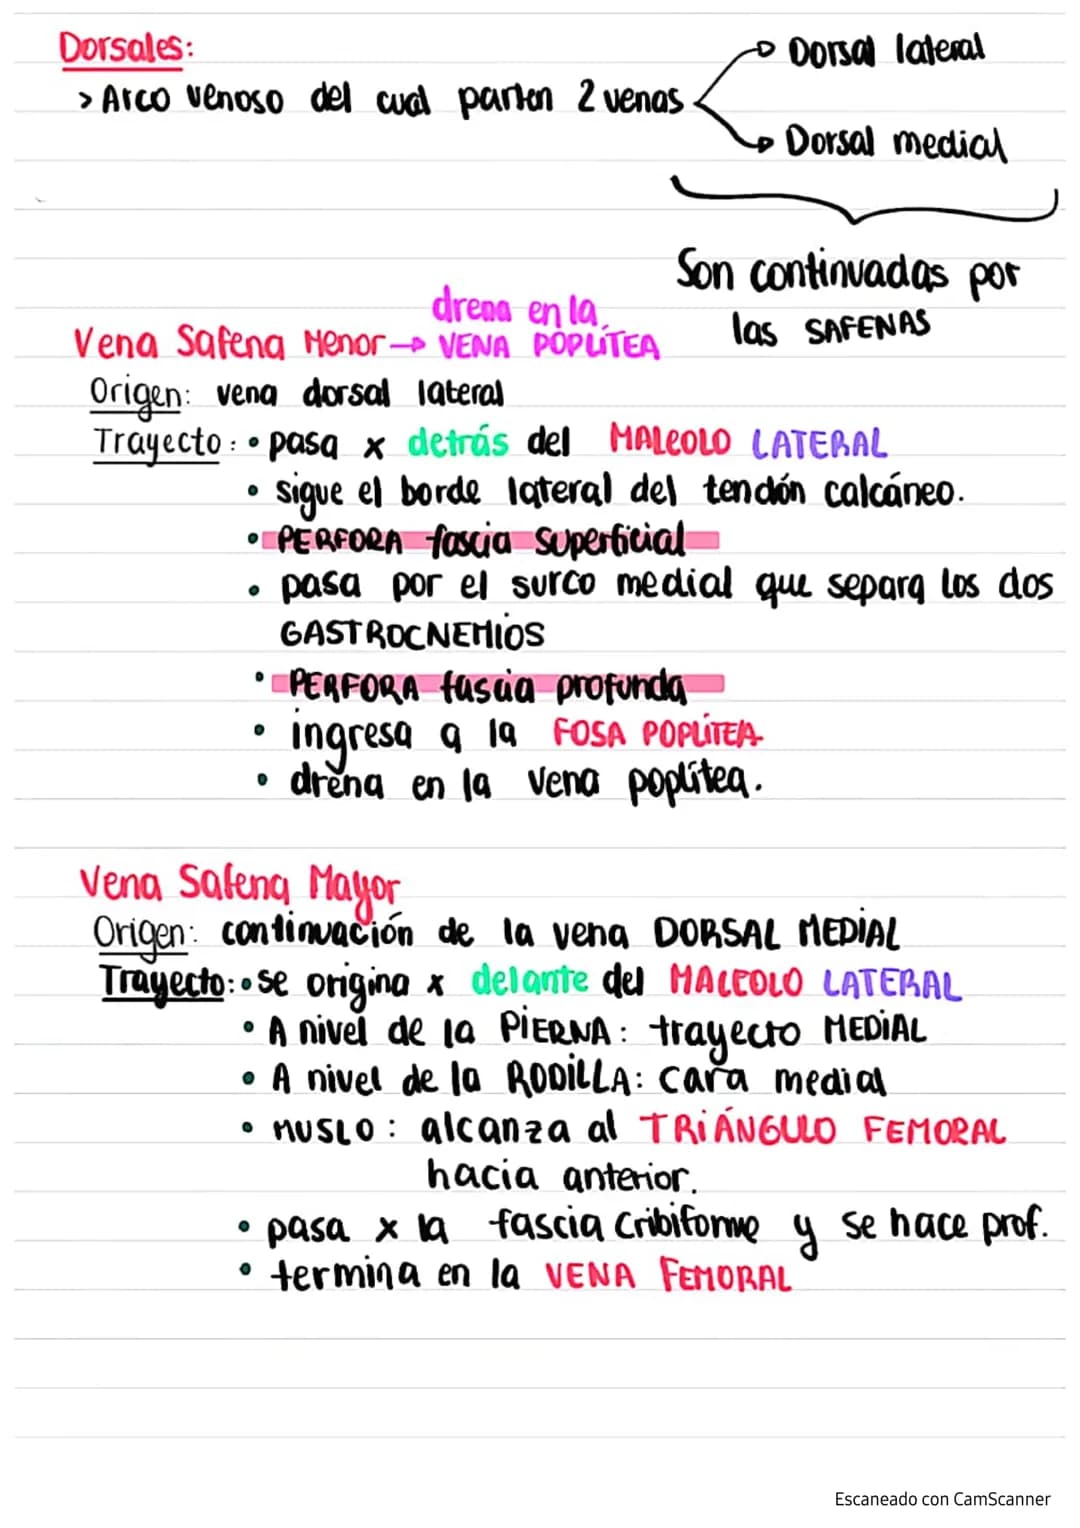 Dorsales:
> Arco venoso del cual parten 2 venas
Dorsal lateral
Dorsal medial
Son continuadas por
las SAFENAS
Vena Safena Menor → drena en la
VENA POPLÍTEA
Origen: vena dorsal lateral
Trayecto: • pasa x detrás del MALEOLO LATERAL
• sigue el borde lateral del tendón calcáneo.
• PERFORA fascia superficial
• pasa por el surco medial que separa los dos
GASTROCNEMIOS
• PERFORA fascia profunda
• ingresa a la FOSA POPLÍTEA
• drena en la vena poplítea.
Vena Safena Mayor
Origen: continuación de la vena DORSAL MEDIAL
Trayecto: • se origina x delante del MALEOLO LATERAL
• A nivel de la PIERNA: trayecto MEDIAL
• A nivel de la RODILLA: cara medial
• MUSLO: alcanza al TRIÁNGULO FEMORAL
hacia anterior.
• pasa x la fascia cribiforme y se hace prof.
• termina en la VENA FEMORAL
Escaneado con CamScanner